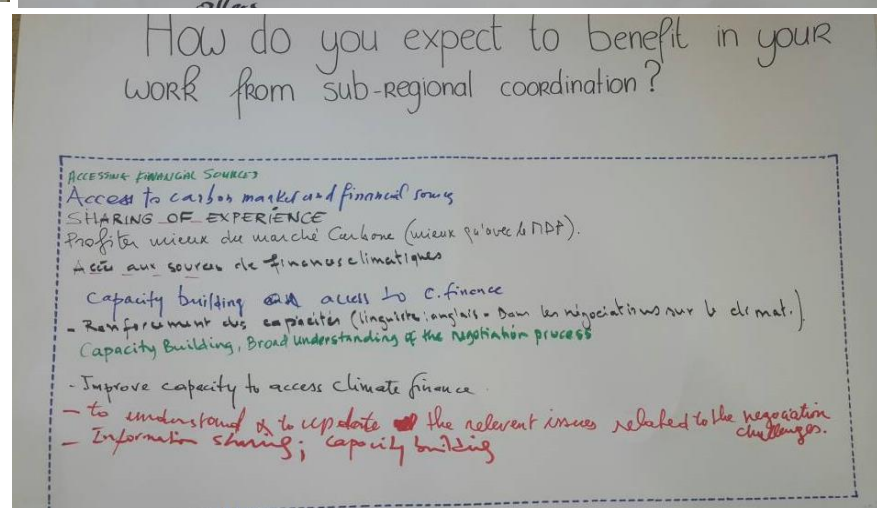 How do you expect to benefit in your
work from sub-regional coordination?
ACCESSING FINANCIAL SOURCES
Access to carbon market and financial sources
SHARING OF EXPERIENCE
Profiter mieux du marché Carbone (mieux qu'avec le MDP).
Accès aux sources de finances climatiques
Capacity building access to c. finance
- Renforcement des capacités (linguiste: anglais. Dans les négociations sur le climat.)
Capacity Building, Broad understanding of the negotiation process
- Improve capacity to access climate finance.
- to understand & to update the relevent issues related to the negociation
challenges.
- Information sharing; capacity building